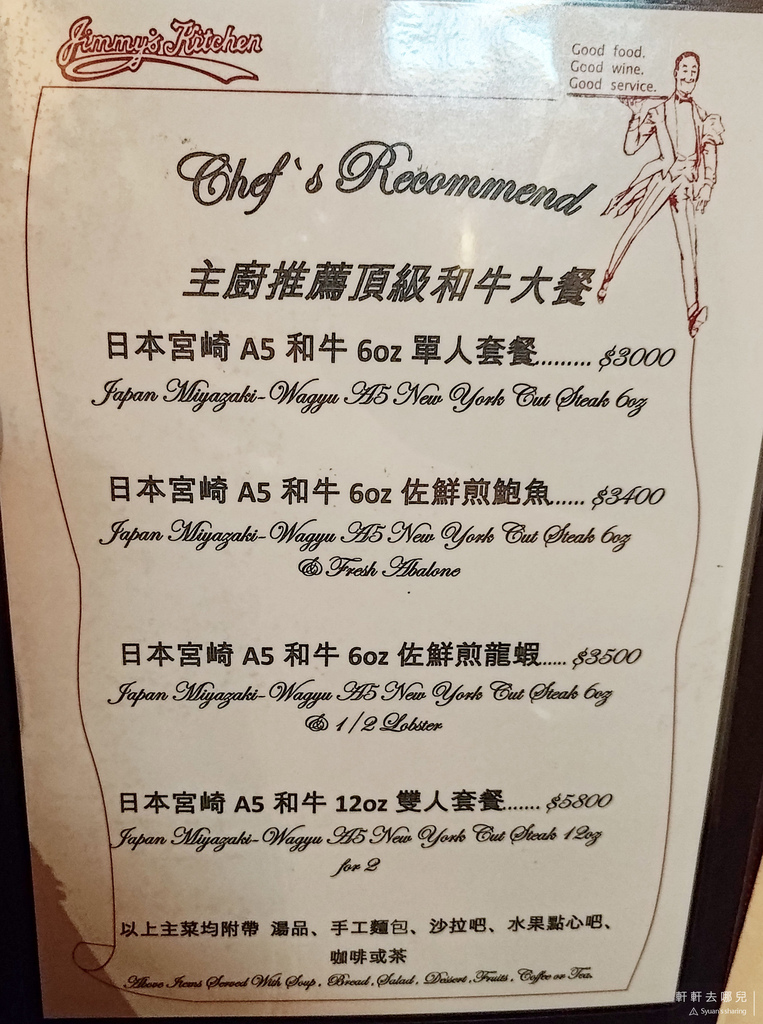 Jimmy's Kitchen
Good food.
Good wine.
Good service.
Chef`s Recommend
主廚推薦頂級和牛大餐
日本宮崎 A5 和牛 6oz 單人套餐......... $3000
Japan Miyazaki-Wagyu A5 New York Cut Steak 6oz
日本宮崎 A5 和牛 6oz 佐鮮煎鮑魚...... $3400
Japan Miyazaki-Wagyu A5 New York Cut Steak 6oz
& Fresh Abalone
日本宮崎 A5 和牛 6oz 佐鮮煎龍蝦...... $3500
Japan Miyazaki-Wagyu A5 New York Cut Steak 6oz
& 1/2 Lobster
日本宮崎 A5 和牛 12oz 雙人套餐....... $5800
Japan Miyazaki-Wagyu A5 New York Cut Steak 12oz
for 2
以上主菜均附帶 湯品、手工麵包、沙拉吧、水果點心吧、
咖啡或茶
Above Items Served With Soup , Bread ,Salad , Dessert ,Fruits , Coffee or Tea.
軒軒去哪兒
Syuan's sharing